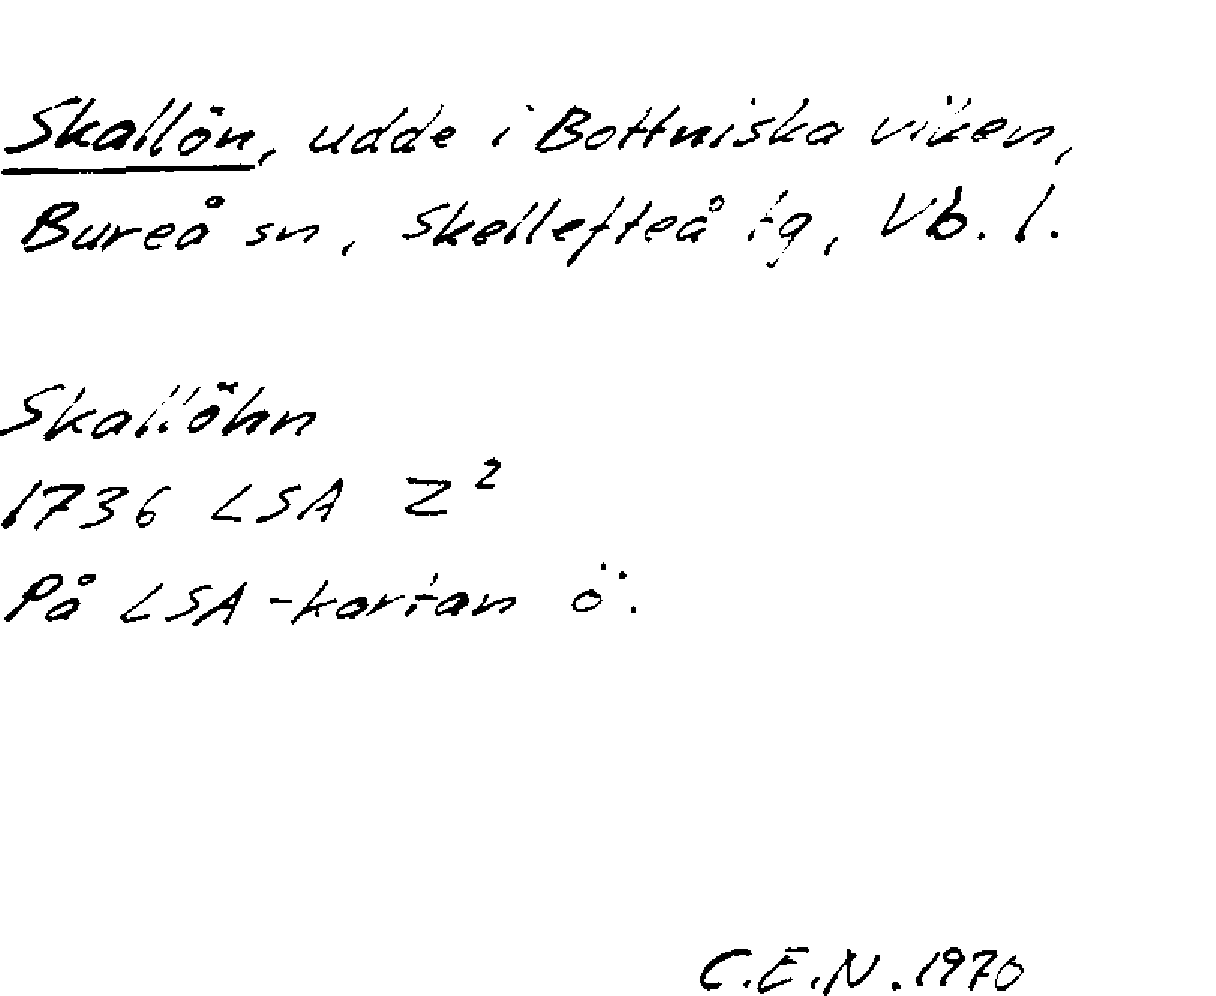 Skallön, udde i Bottniska viken,
Bureå sn, Skellefteå tg, Vb. l.
Skallöhn
1736 LSA Z²
På LSA-kartan ö.
C.E.N. 1970